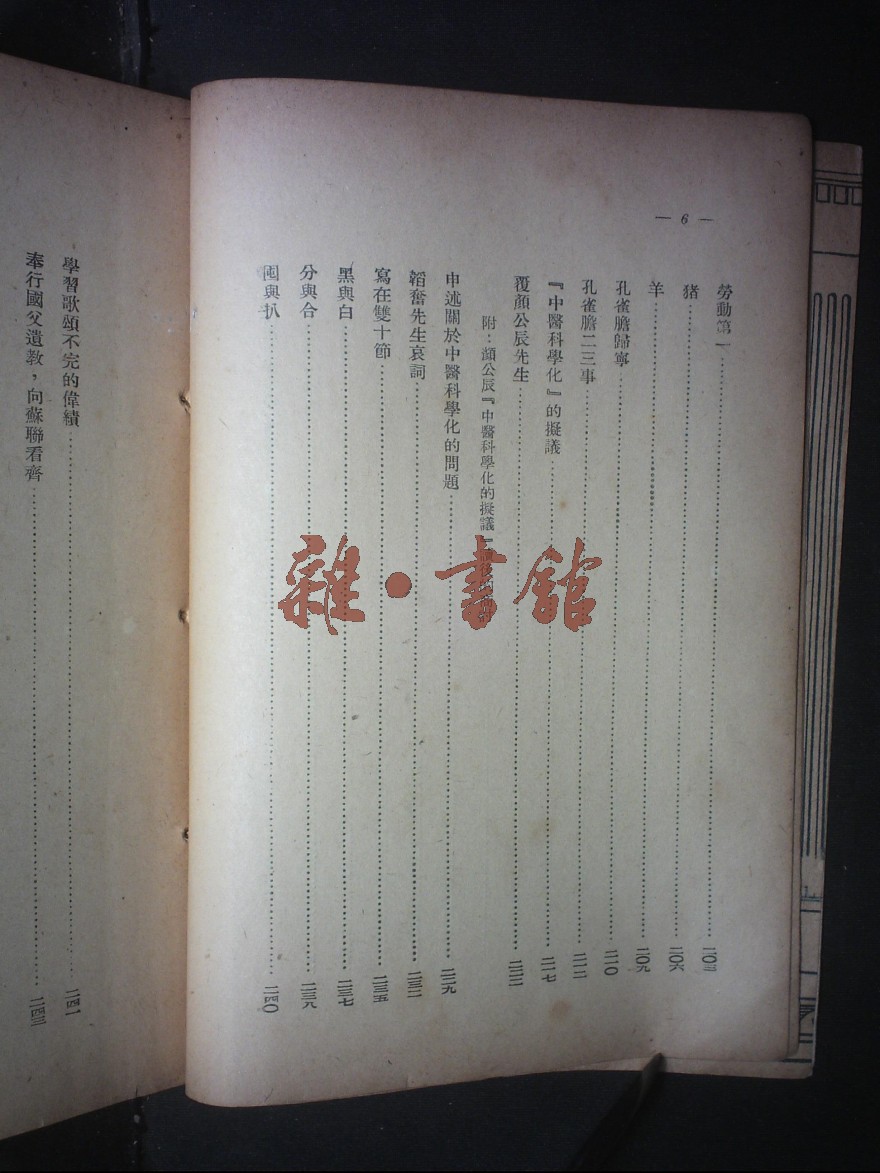 — 6 —
勞動第一……二〇三
猪……二〇六
羊……二〇九
孔雀膽歸寧……二一〇
孔雀膽二三事……二一二
『中醫科學化』的擬議……二一七
覆顏公辰先生……二二二
附：顏公辰『中醫科學化的擬議』
申述關於中醫科學化的問題……二二九
韜奮先生哀詞……二三二
寫在雙十節……二三五
黑與白……二三七
分與合……二三八
囤與扒……二四〇
學習歌頌不完的偉績……二四一
奉行國父遺教，向蘇聯看齊……二四三
雜·書館